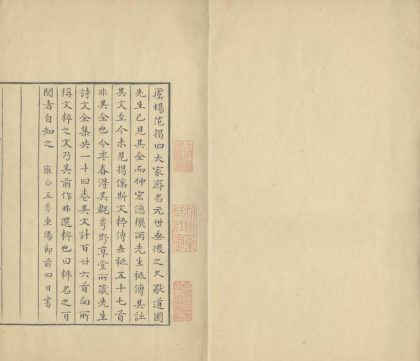 虞楊范揭四大家齊名元世垂後之久獻道園
先生已見其全而仲宏德機兩先生祇傳其詩
其文至今未見揭傒斯文粹傳者祇五十七首
非其全也今季春得吳觀秀野草堂所藏先生
詩文全集共一十四卷其文計百廿六首向所
稱文粹之文乃其前作非選粹也因粹名之耳
閱者自知之 雍正五季重陽節前四日書